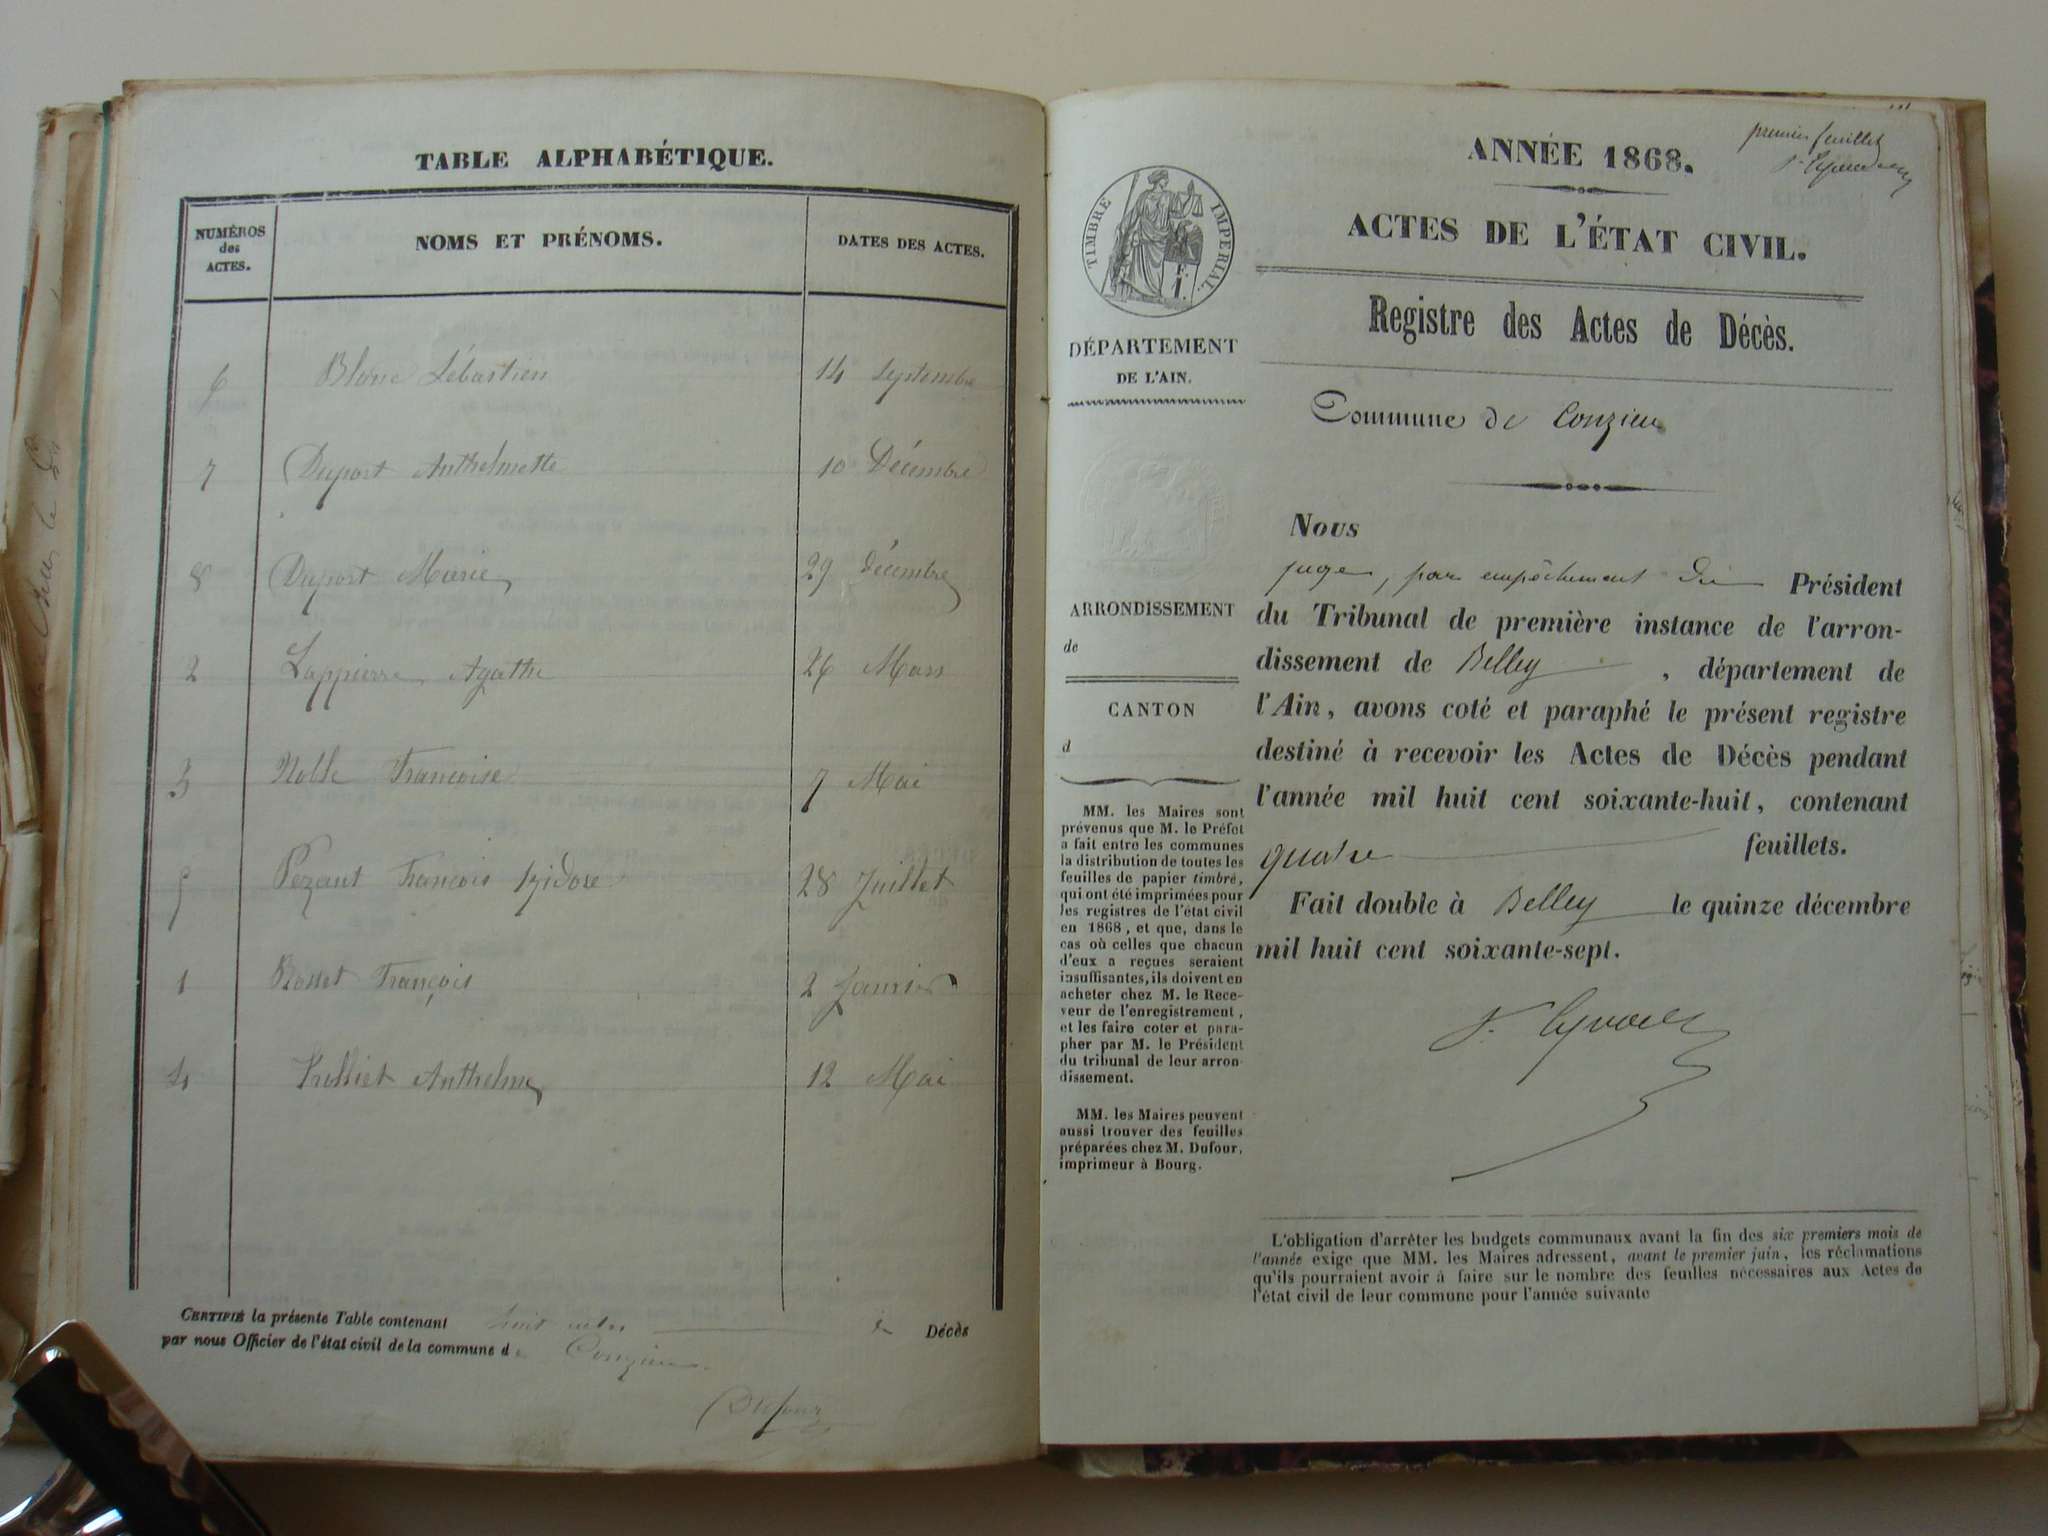 TABLE ALPHABÉTIQUE.
NUMÉROS des ACTES.
NOMS ET PRÉNOMS.
DATES DES ACTES.
6 Blanc Sébastien 14 Septembre
7 Duport Anthelmette 10 Décembre
8 Duport Marie 29 Décembre
2 Lappierre Agathe 26 Mars
3 Françoise 7 Mai
5 Pezant François Izidore 28 Juillet
1 Rosset François 2 Janvier
4 Trelliet Anthelme 12 Mai
CERTIFIÉ la présente Table contenant huit actes de Décès
par nous Officier de l'état civil de la commune de Conzieu
premier feuillet
ANNÉE 1868.
ACTES DE L'ÉTAT CIVIL.
Registre des Actes de Décès.
TIMBRE IMPERIAL.
DÉPARTEMENT
DE L'AIN.
Commune de Conzieu
ARRONDISSEMENT
de
CANTON
d
MM. les Maires sont
prévenus que M. le Préfet
a fait entre les communes
la distribution de toutes les
feuilles de papier timbré,
qui ont été imprimées pour
les registres de l'état civil
en 1868, et que, dans le
cas où celles que chacun
d'eux a reçues seraient
insuffisantes, ils doivent en
acheter chez M. le Rece-
veur de l'enregistrement,
et les faire coter et para-
pher par M. le Président
du tribunal de leur arron-
dissement.
MM. les Maires peuvent
aussi trouver des feuilles
préparées chez M. Dufour,
imprimeur à Bourg.
Nous
juge, par empêchement du Président
du Tribunal de première instance de l'arron-
dissement de Belley, département de
l'Ain, avons coté et paraphé le présent registre
destiné à recevoir les Actes de Décès pendant
l'année mil huit cent soixante-huit, contenant
quatre feuillets.
Fait double à Belley le quinze décembre
mil huit cent soixante-sept.
L'obligation d'arrêter les budgets communaux avant la fin des six premiers mois de
l'année exige que MM. les Maires adressent, avant le premier juin, les réclamations
qu'ils pourraient avoir à faire sur le nombre des feuilles nécessaires aux Actes de
l'état civil de leur commune pour l'année suivante